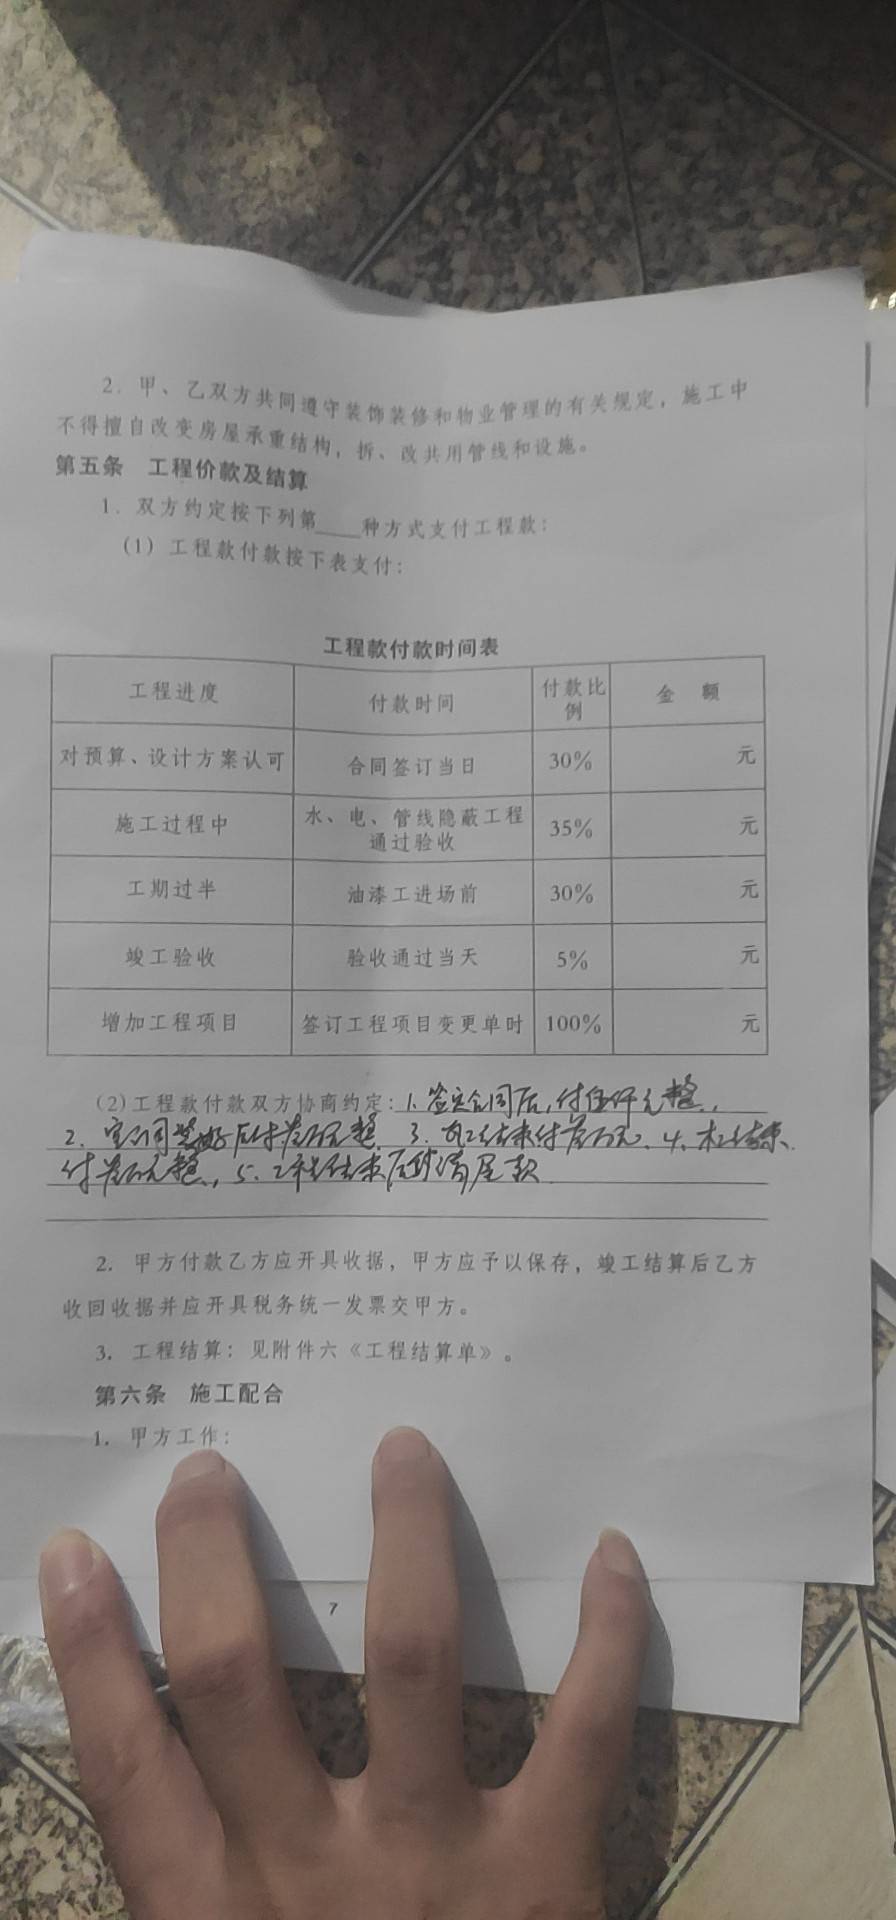 2. 甲、乙双方共同遵守装饰装修和物业管理的有关规定，施工中
不得擅自改变房屋承重结构，拆、改共用管线和设施。
第五条 工程价款及结算
1. 双方约定按下列第____种方式支付工程款：
(1) 工程款付款按下表支付：
工程款付款时间表
工程进度 付款时间 付款比例 金 额
对预算、设计方案认可 合同签订当日 30% 元
施工过程中 水、电、管线隐蔽工程通过验收 35% 元
工期过半 油漆工进场前 30% 元
竣工验收 验收通过当天 5% 元
增加工程项目 签订工程项目变更单时 100% 元
(2)工程款付款双方协商约定：1. 签定合同后，付伍仟元整.，
2. 后付 元整. 3. 瓦工结束付 元. 4. 木工结束.
付 元整.，5. 结束后 清尾款
2. 甲方付款乙方应开具收据，甲方应予以保存，竣工结算后乙方
收回收据并应开具税务统一发票交甲方。
3. 工程结算：见附件六《工程结算单》。
第六条 施工配合
1. 甲方工作：
7